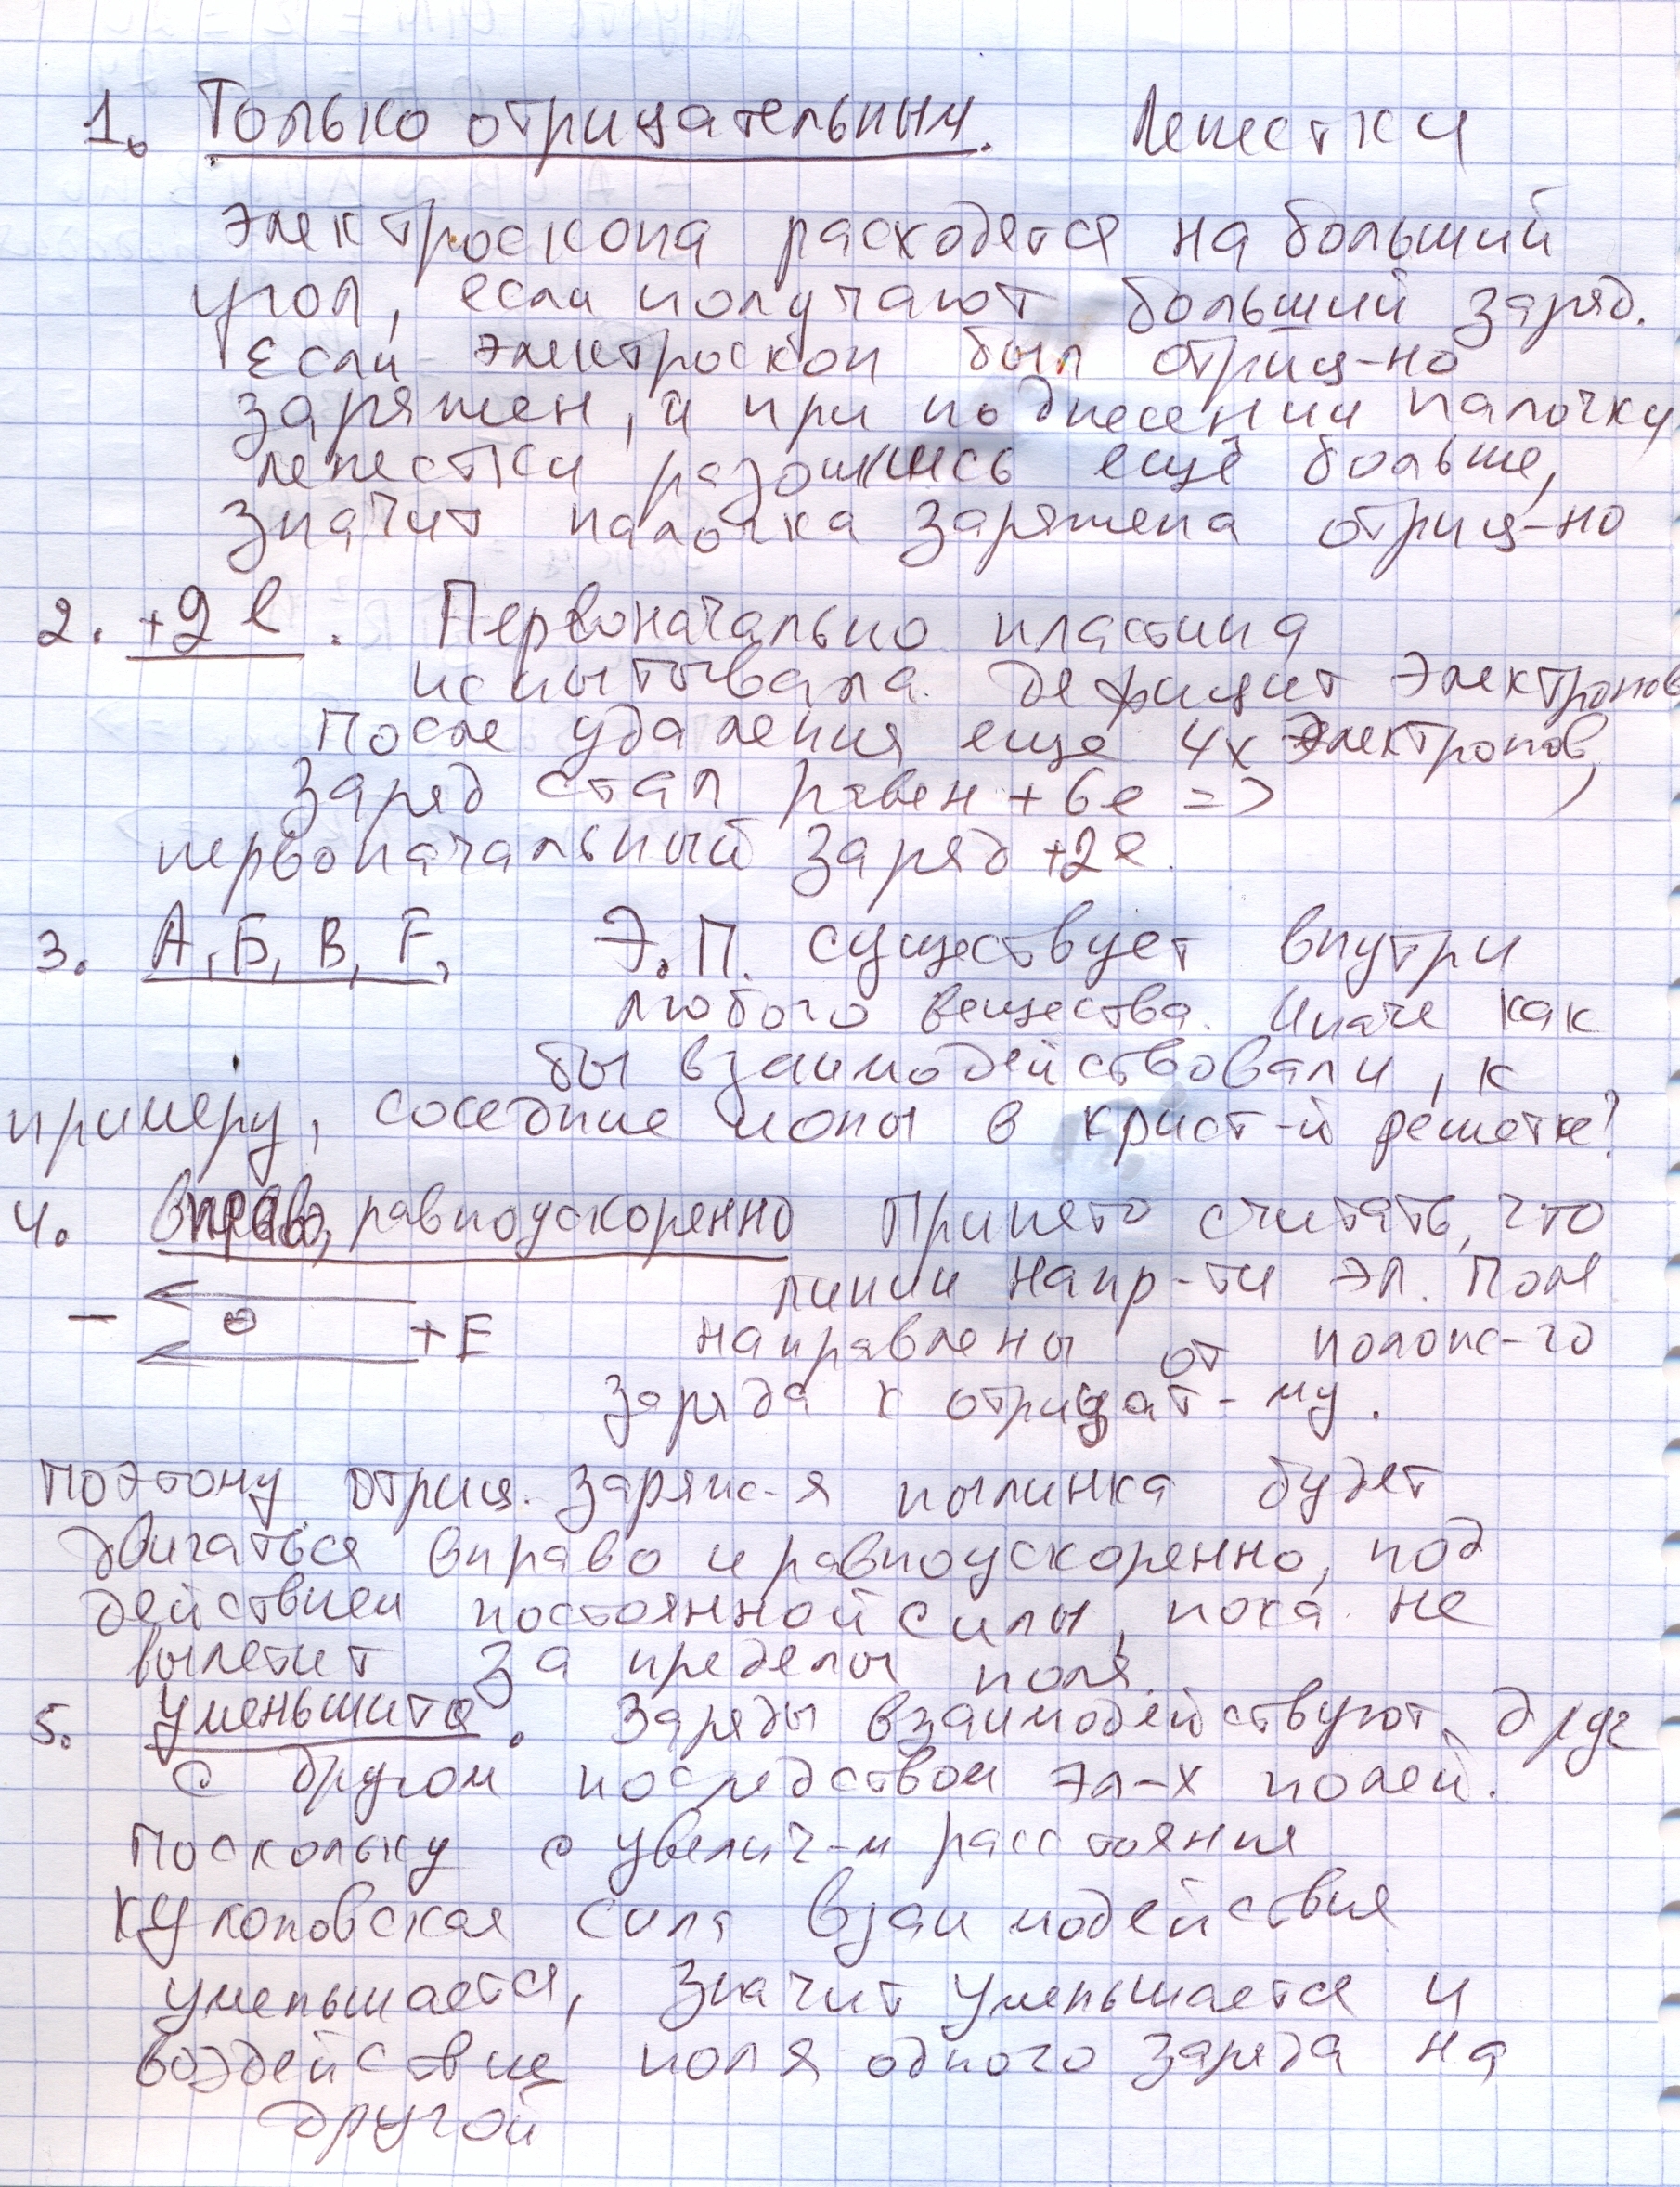 1. Только отрицательным. Лепестки
электроскопа расходятся на больший
угол, если получают больший заряд.
Если электроскоп был отриц-но
заряжен, и при поднесении палочки
лепестки разошлись ещё больше,
значит палочка заряжена отриц-но
2. +2 e. Первоначально пластина
испытывала дефицит электронов
После удаления еще 4х электронов,
заряд стал равен +6e =>
первоначальный заряд +2e.
3. А, Б, В, Г, Э.П. существует внутри
любого вещества. Иначе как
бы взаимодействовали, к
примеру, соседние ионы в крист-й решетке?
4. Вправо, равноускоренно Принято считать, что
линии напр-ти эл. поля
− ⊖ +E направлены от полож-го
заряда к отрицат-му.
Поэтому отриц. заряж-я пылинка будет
двигаться вправо и равноускоренно, под
действием постоянной силы, пока не
вылетит за пределы поля.
5. Уменьшится. Заряды взаимодействуют друг
с другом посредством эл-х полей.
Поскольку с увелич-м расстояния
кулоновская сила взаимодействия
уменьшается, значит уменьшается и
воздействие поля одного заряда на
другой